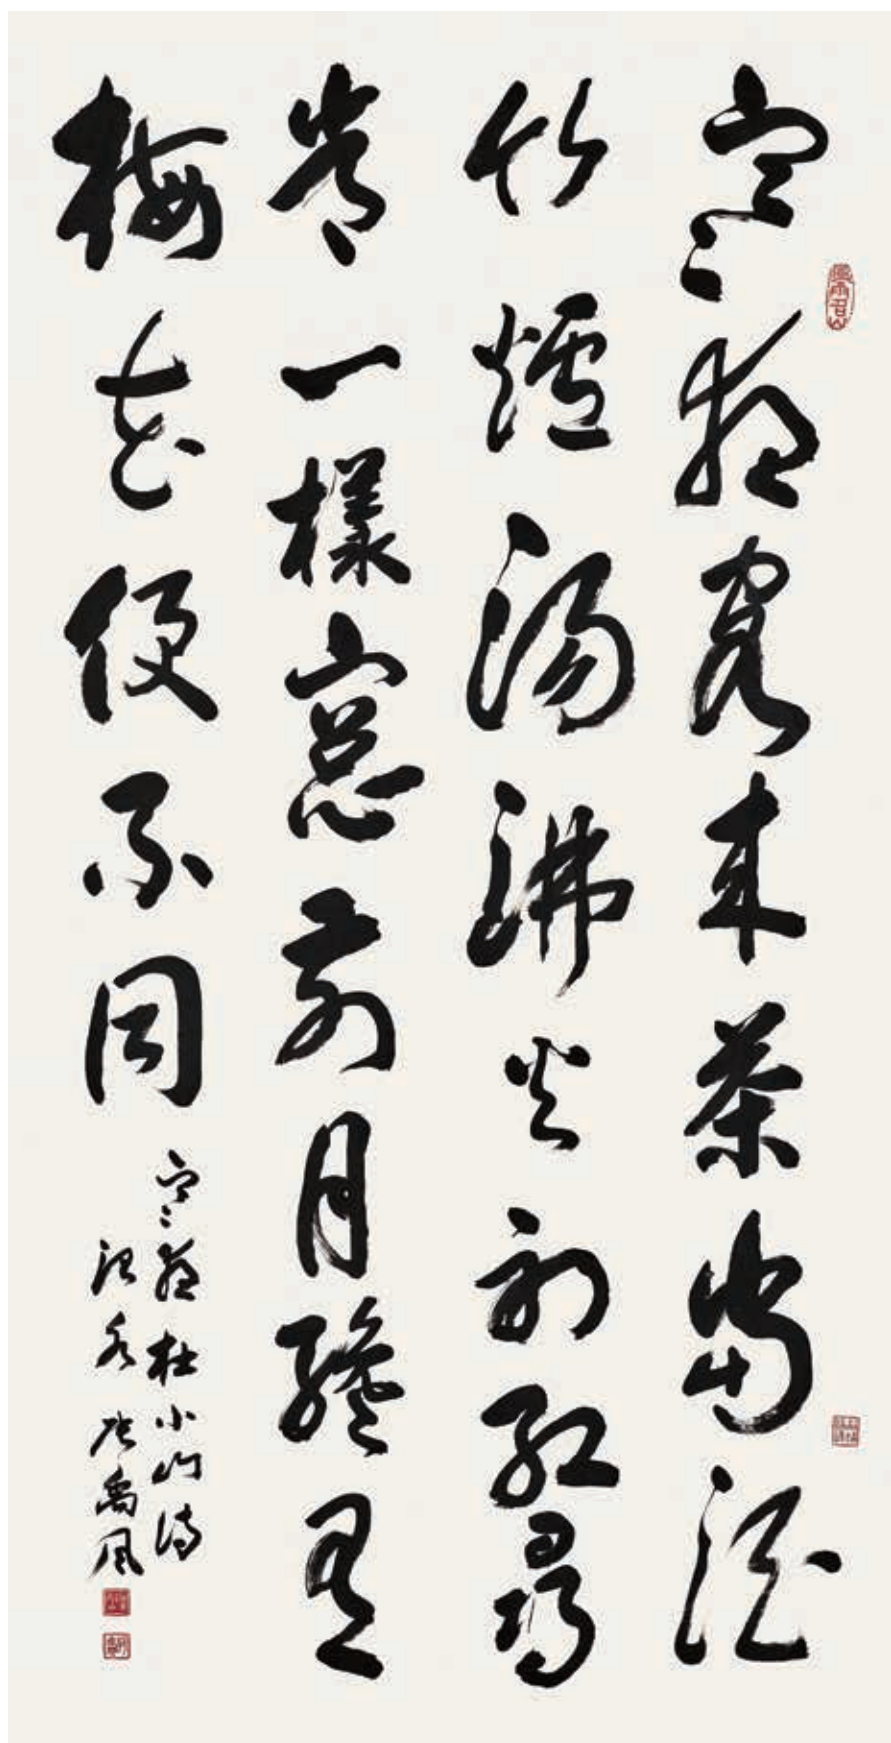 寒夜客来茶當酒
竹爐湯沸火初紅尋
常一樣窻前月纔有
梅花便不同
寒夜杜小山詩
張禹風